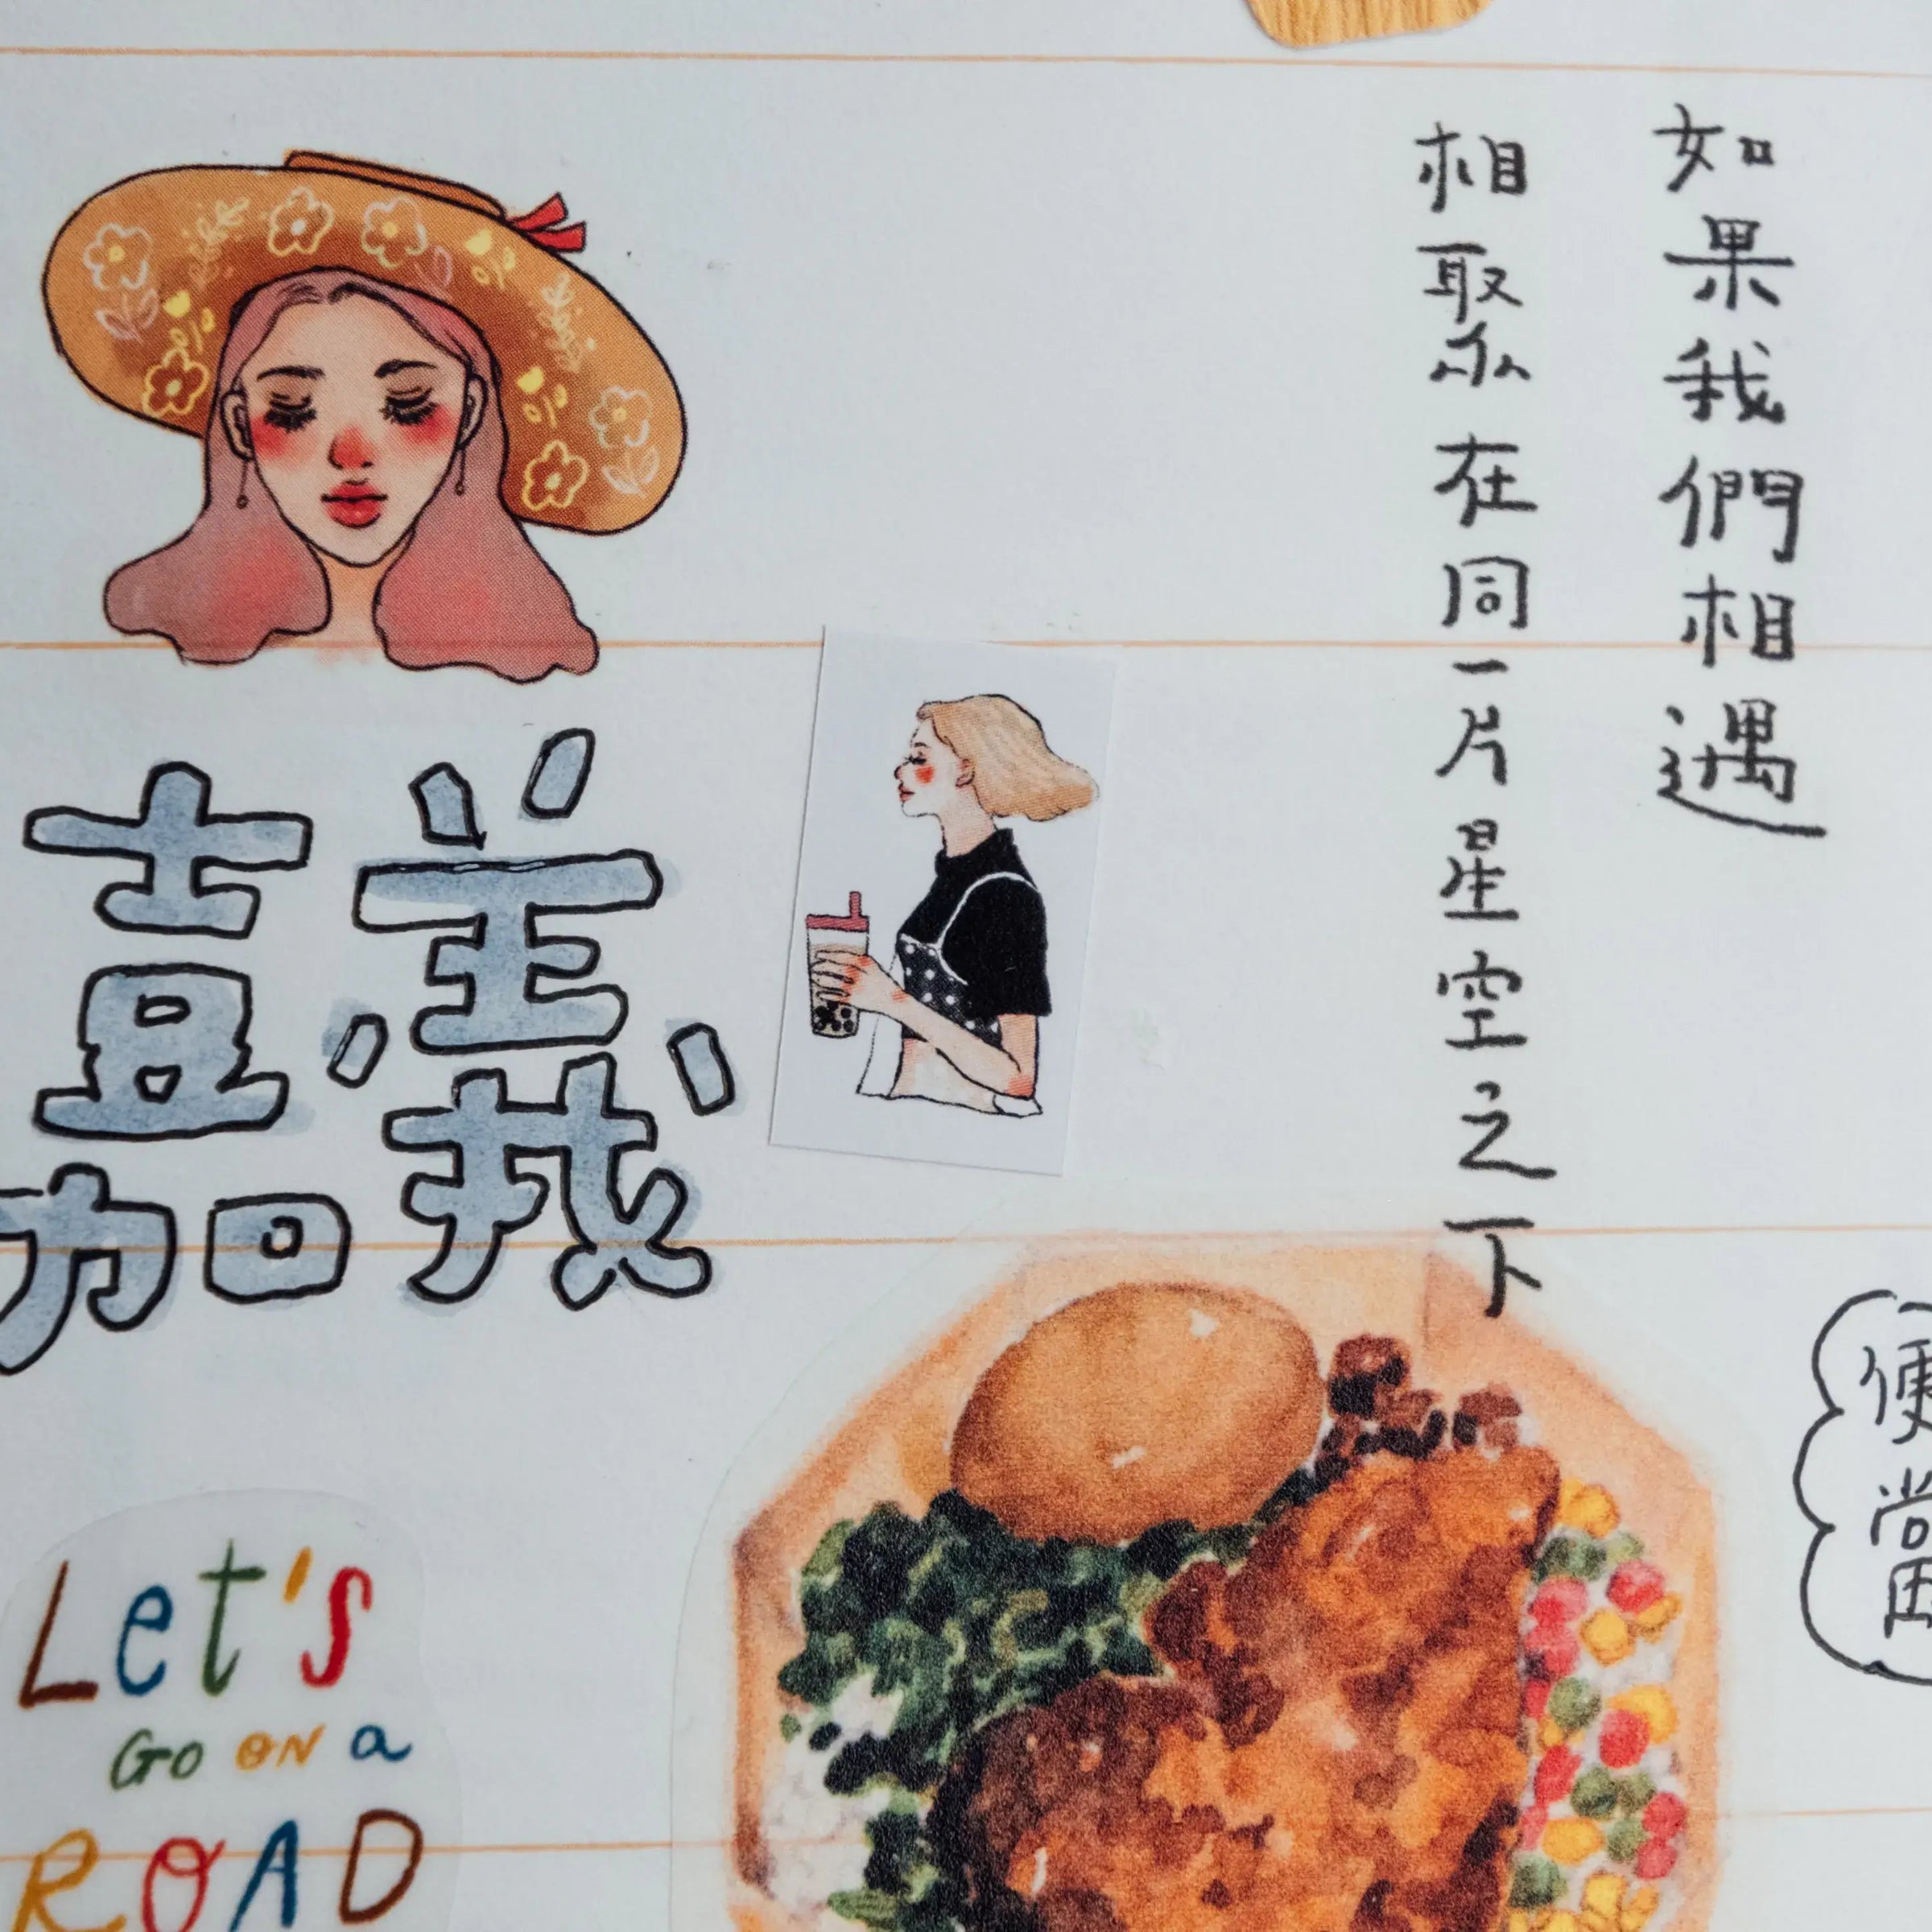 如果我們相遇
相聚在同一片星空之下
嘉義
Let's
Go ON a
ROAD
便當